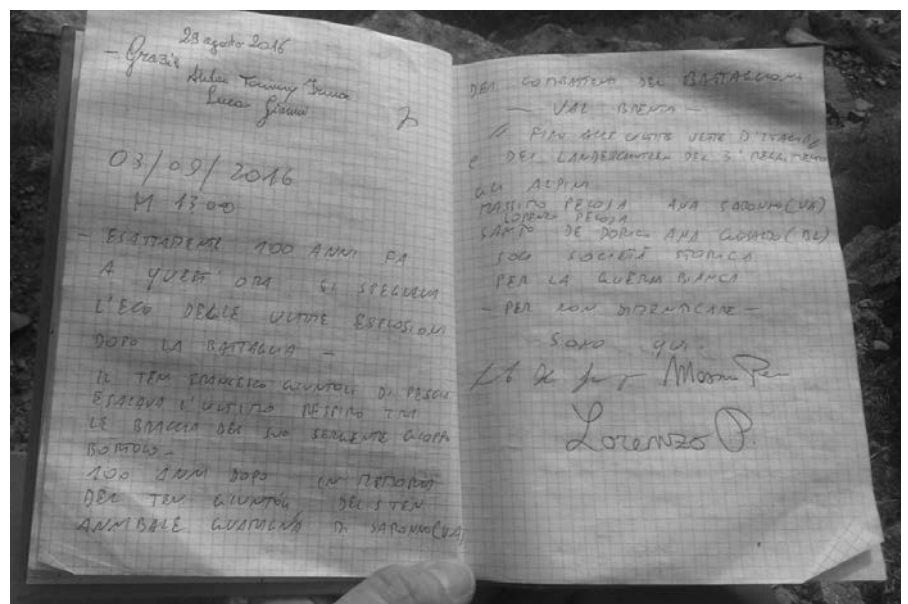 29 agosto 2016
- Grazie
Tommy
Luca Gianni
03/09/2016
H 1300
- ESATTAMENTE 100 ANNI FA
A QUEST'ORA SI SPEGNEVA
L'ECO DELLE ULTIME ESPLOSIONI
DOPO LA BATTAGLIA -
IL TEN FRANCESCO GIUNTOLI DI PESCIA
ESALAVA L'ULTIMO RESPIRO TRA
LE BRACCIA DEL SUO SERGENTE
BORTOLO -
100 ANNI DOPO IN MEMORIA
DEL TEN GIUNTOLI DEL S TEN
ANNIBALE GUADAGNA DI SARONNO (VA)
DEI COMBATTENTI DEL BATTAGLIONE
- VAL BRENTA -
FINO ALLE ULTIME VETTE D'ITALIA
E DEI LANDESSCHUTZEN DEL 3° REGGIMENTO
GLI ALPINI
MASSIMO PELOSA ANA SARONNO (VA)
LORENZO PELOSA
DE ANA (BL)
SOCI SOCIETÀ STORICA
PER LA GUERRA BIANCA
- PER NON DIMENTICARE -
SONO QUI.
Lorenzo P.